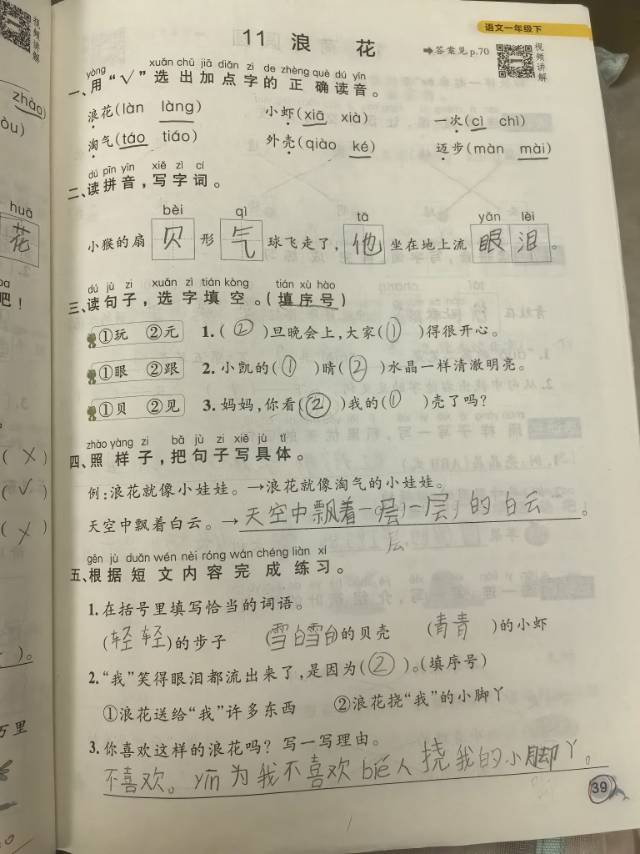 语文一年级下
11 浪 花
➡答案见p.70
视频讲解
yòng xuǎn chū jiā diǎn zì de zhèng què dú yīn
一、用“√”选出加点字的正确读音。
浪花(làn làng) 小虾(xiā xià) 一次(cì chì)
淘气(táo tiáo) 外壳(qiào ké) 迈步(màn mài)
dú pīn yīn xiě zì cí
二、读拼音,写字词。
bèi qì tā yǎn lèi
小猴的扇贝形气球飞走了,他坐在地上流眼泪。
dú jù zi xuǎn zì tián kòng tián xù hào
三、读句子,选字填空。(填序号)
①玩 ②元 1.(②)旦晚会上,大家(①)得很开心。
①眼 ②跟 2.小凯的(①)睛(②)水晶一样清澈明亮。
①贝 ②见 3.妈妈,你看(②)我的(①)壳了吗?
zhào yàng zi bǎ jù zi xiě jù tǐ
四、照样子,把句子写具体。
例:浪花就像小娃娃。→浪花就像淘气的小娃娃。
天空中飘着白云。→天空中飘着一层一层的白云。
层
gēn jù duǎn wén nèi róng wán chéng liàn xí
五、根据短文内容完成练习。
1.在括号里填写恰当的词语。
(轻轻)的步子 (雪白雪白)的贝壳 (青青)的小虾
2.“我”笑得眼泪都流出来了,是因为(②)。(填序号)
①浪花送给“我”许多东西 ②浪花挠“我”的小脚丫
3.你喜欢这样的浪花吗?写一写理由。
不喜欢。yīn为我不喜欢bié人挠我的小脚丫。
39
视频讲解
zhào)
òu)
huā
花
吧!
(×)
(√)
(×)
)。
万里